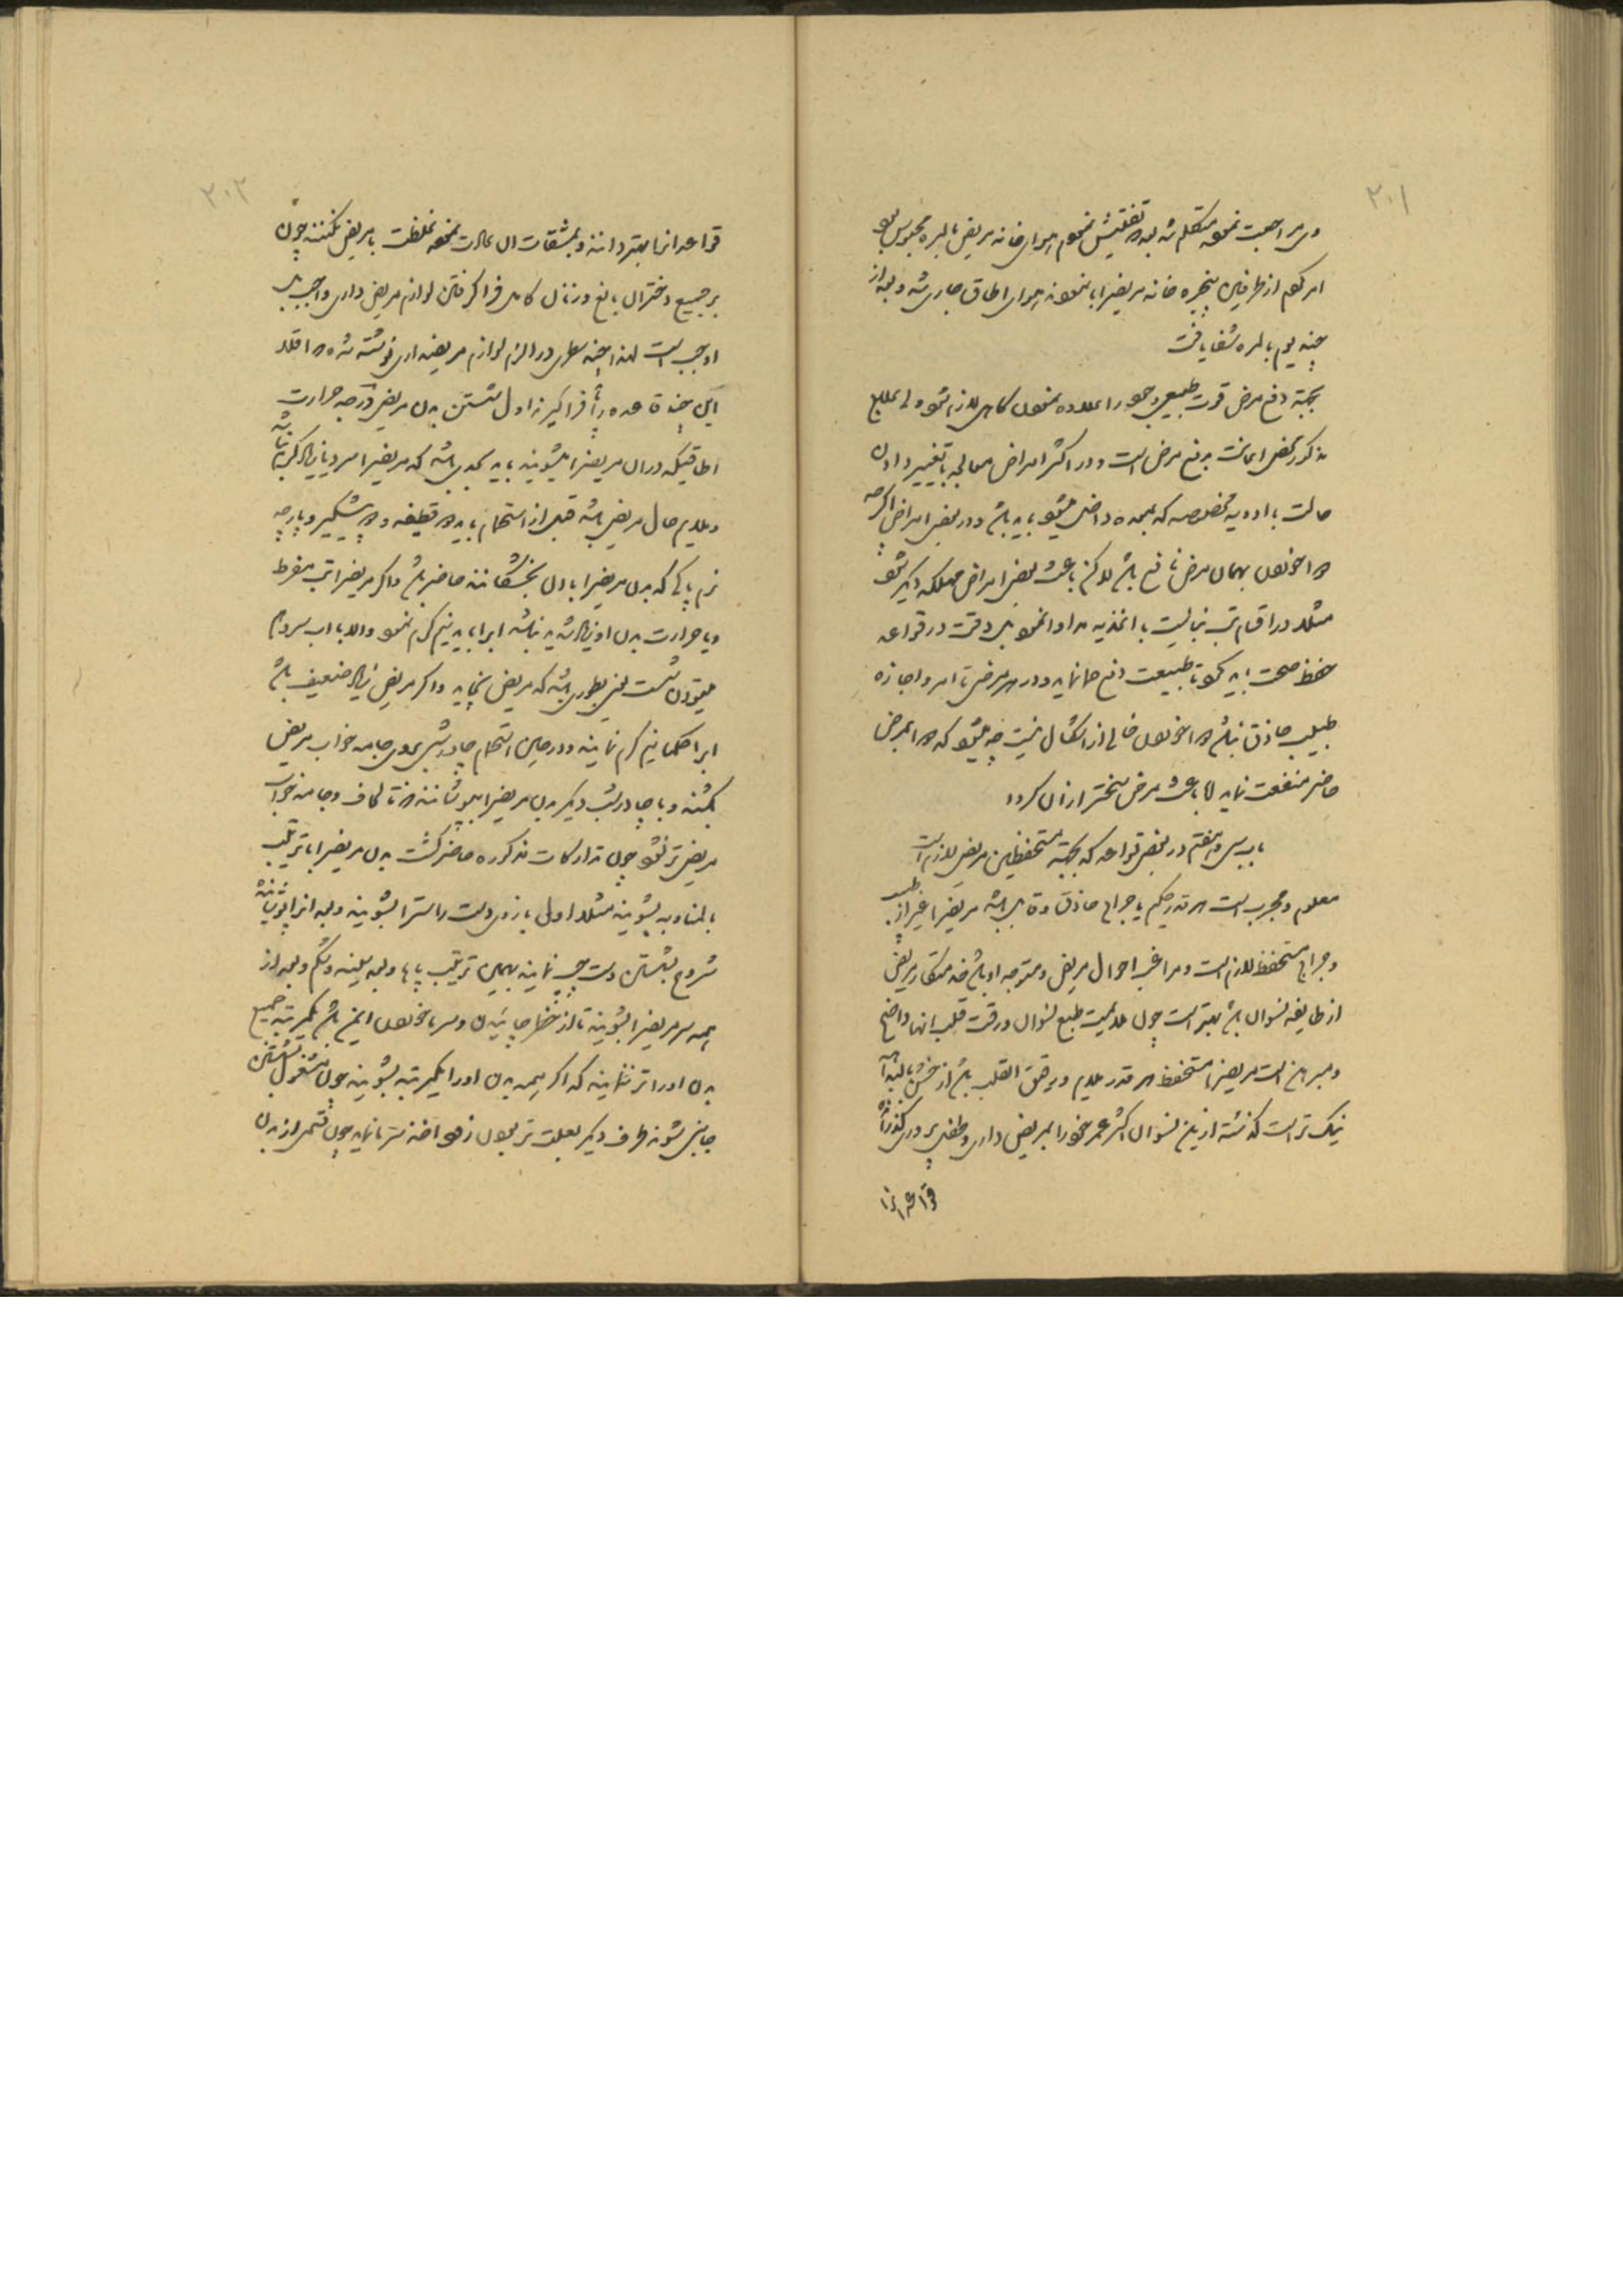 ۲۰۱
و مراجعت نموده متکلم شد بعد تفتیش نمودم هوای خانه مریض بالمره محبوس بود
امر کردم از طرفین پنجره خانه مریض را باز نموده هوای اطاق جاری شد و بعد از
چند یوم بالمره شفا یافت
بجهة دفع مرض قوت طبیعی وجود را علاوه نمودن کامل لازم میشود لی علاج
مذکور محض اعانت بدفع مرض است و در اکثر امراض معالجه با تغییر دادن
حالت با ادویه مخصوصه که بمعده داخل میشود باید باشد و در بعضی امراض اگرچه
خون بهمان مرض نافع باشد لاکن باعث بعضی امراض مهلکه دیگر شود
مثلا در اقسام تب نبایست با اغذیه مداوا نمود بل دقت در قواعد
حفظ صحت باید کرد تا طبیعت دفع آنها نماید و در هر مرض تا امر و اجازه
طبیب حاذق نباشد خوردن خالی از اشکال نیست چه میشود که بمرض
حاضر منفعت نماید اما باعث مرض سختتر از آن گردد
باب سی و هفتم در بعضی قواعد که بجهة مستحفظین مریض لازم است
معلوم و مجرب است هر قدر حکیم یا جراح حاذق و قابل باشد مریض را غیر از طبیب
و جراح مستحفظ لازم است و مراغب احوال مریض و متوجه او باشد خدمتکار مریض
از طایفه نسوان باشد بهتر است چون ملایمت طبع نسوان و رقت قلب آنها واضح
و مبرهن است مریض را مستحفظ هر قدر ملایم و رقیق القلب باشد از خشن البته
نیک تر است گذشته ازین نسوان اکثر عمر خود را بمریض داری و طفل پروری گذرانده
قواعد آنرا
۲۰۲
قواعد آنرا بهتر دانند و بمشقات آن عادت نموده غلظت با مریض نکنند چون
بر جمیع دختران بالغ و زنان کامل فرا گرفتن لوازم مریض داری واجب بل
اوجب است لهذا چند سطری در الزم لوازم مریض داری نوشته شد اقلا
این چند قاعده را فرا گیرند اول شستن بدن مریض درجه حرارت
اطاقیکه در آن مریض را میشویند باید بحدی باشد که مریض را سرد یا زیاد گرم نباشد
و ملایم حال مریض باشد قبل از استحمام باید قطیفه و پیشگیر و پارچه
نرم پاکی که بدن مریض را با آن بخشکانند حاضر باشد و اگر مریض را تب مفرط
و یا حرارت بدن او زیاد شدید نباشد آب را باید نیم گرم نمود والا با آب سرد هم
میتوان شست لیکن بطوری باشد که مریض نچاید و اگر مریض زیاد ضعیف باشد
آب را حکما نیم گرم نمایند و در حین استحمام چادر شبی بروی جامه خواب مریض
بکشند و با چادر شب دیگر بدن مریض را بپوشانند تا لحاف و جامه خواب
مریض تر نشود چون تدارکات مذکوره حاضر گشت بدن مریض را بترتیب
بالمناوبه بشویند مثلا اول بازوی دست راست را بشویند و بعد آنرا پوشانیده
شروع بشستن دست چپ نمایند بهمین ترتیب پاها و بعد سینه و شکم و بعد از
همه سر مریض را بشویند تا از خطر چاییدن و سرما خوردن ایمن باشد یکمرتبه جمیع
بدن او را تر ننمایند که اگر همه بدن او را یکمرتبه بشویند چون مشغول شستن
جانبی شوند طرف دیگر بعلت تر بودن زود اخذ سرما نماید چون قسمی از بدن